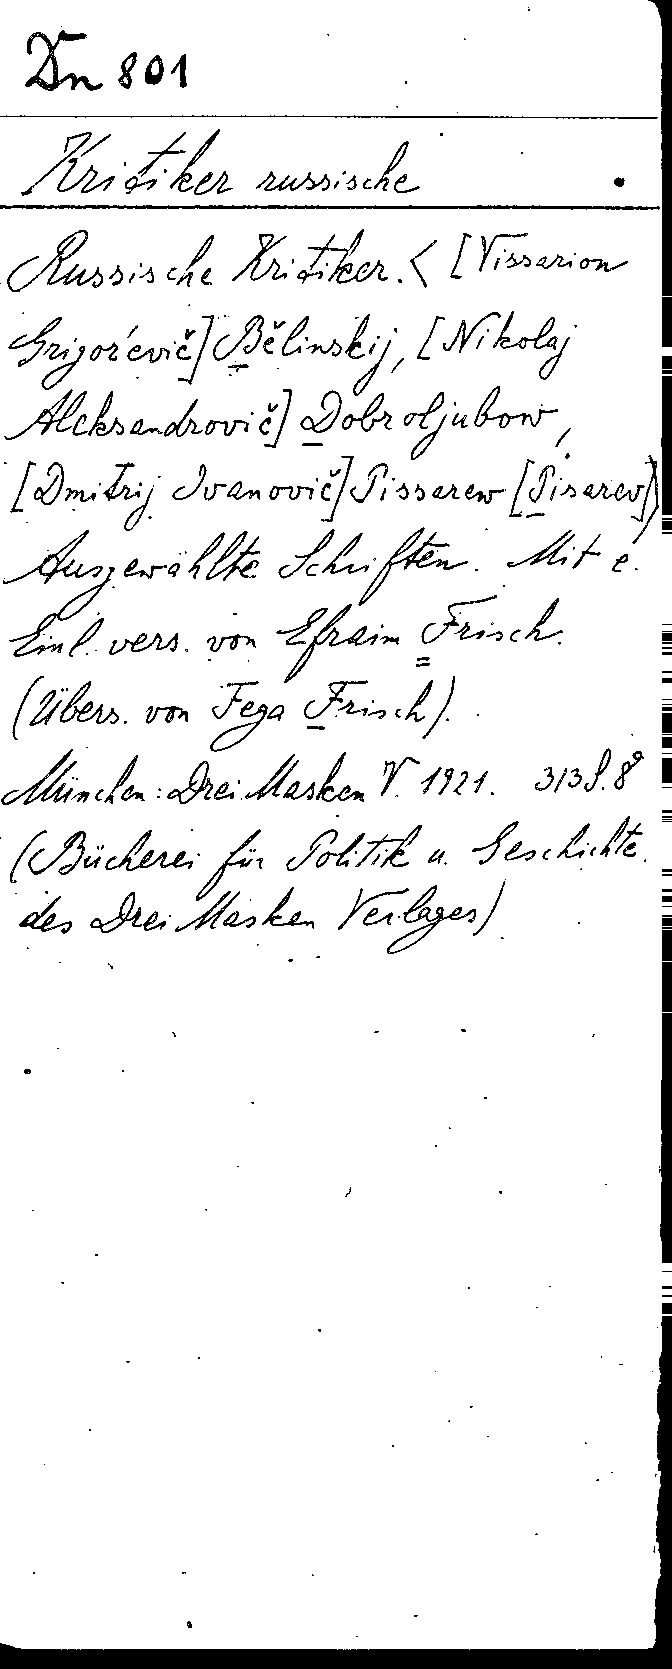 Dn 801
Kritiker russische
Russische Kritiker. < [Vissarion
Grigor'evič] Bělinskij, [Nikolaj
Aleksandrovič] Dobroljubow,
[Dmitrij Ivanovič] Pissarew [Pisarev]>
Ausgewählte Schriften. Mit e.
Einl. vers. von Efraim Frisch.
(Übers. von Fega Frisch).
München: Drei Masken V. 1921. 313 S. 8°
(Bücherei für Politik u. Geschichte
des Drei Masken Verlages)